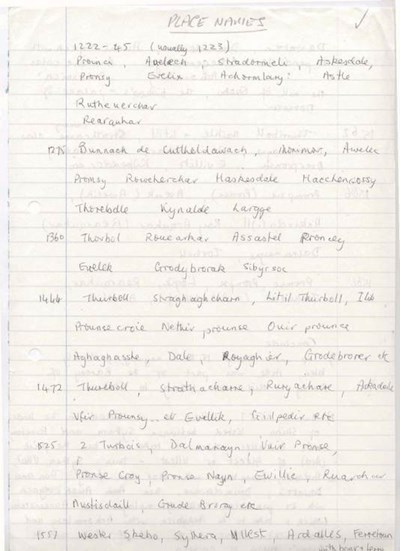 PLACE NAMES
1222-45 (usually 1223)
Prounci, Avelech, Stradormeli, Askesdale,
Promsy Evelix Achormlary: Astle
Rutheuerchar
Rearquhar
1275 Bunnack de Cutheldawach, Awelec
Promsy Rowcherchar Haskesdale Macchenrossy
Thorebolle Kynalde Largge
1360 Thorbol Roucarhar Assastel Promcy
Evelek Crodybrorak Sibyrsoc
1464 Thurboll Straghaghcharn, Litil Thurboll,
Prounse croie Nethir prounse Ouir prounce
Aghaghasste, Dale, Royaghar, Crodebrorer etc
1472 Thurlboll, Strathacharre, Ruryachare, Askadale
Vfir Prounsy .. et Evellik, etc
1525 2 Turbois, Dalmanayn, Vuir Pronse,
Pronse Croy, Pronse Nayn, Ewillic, Ruarchar
Austisdaill Crude Broray etc
1557 Wester Shebo, Sythera, Ardalles,